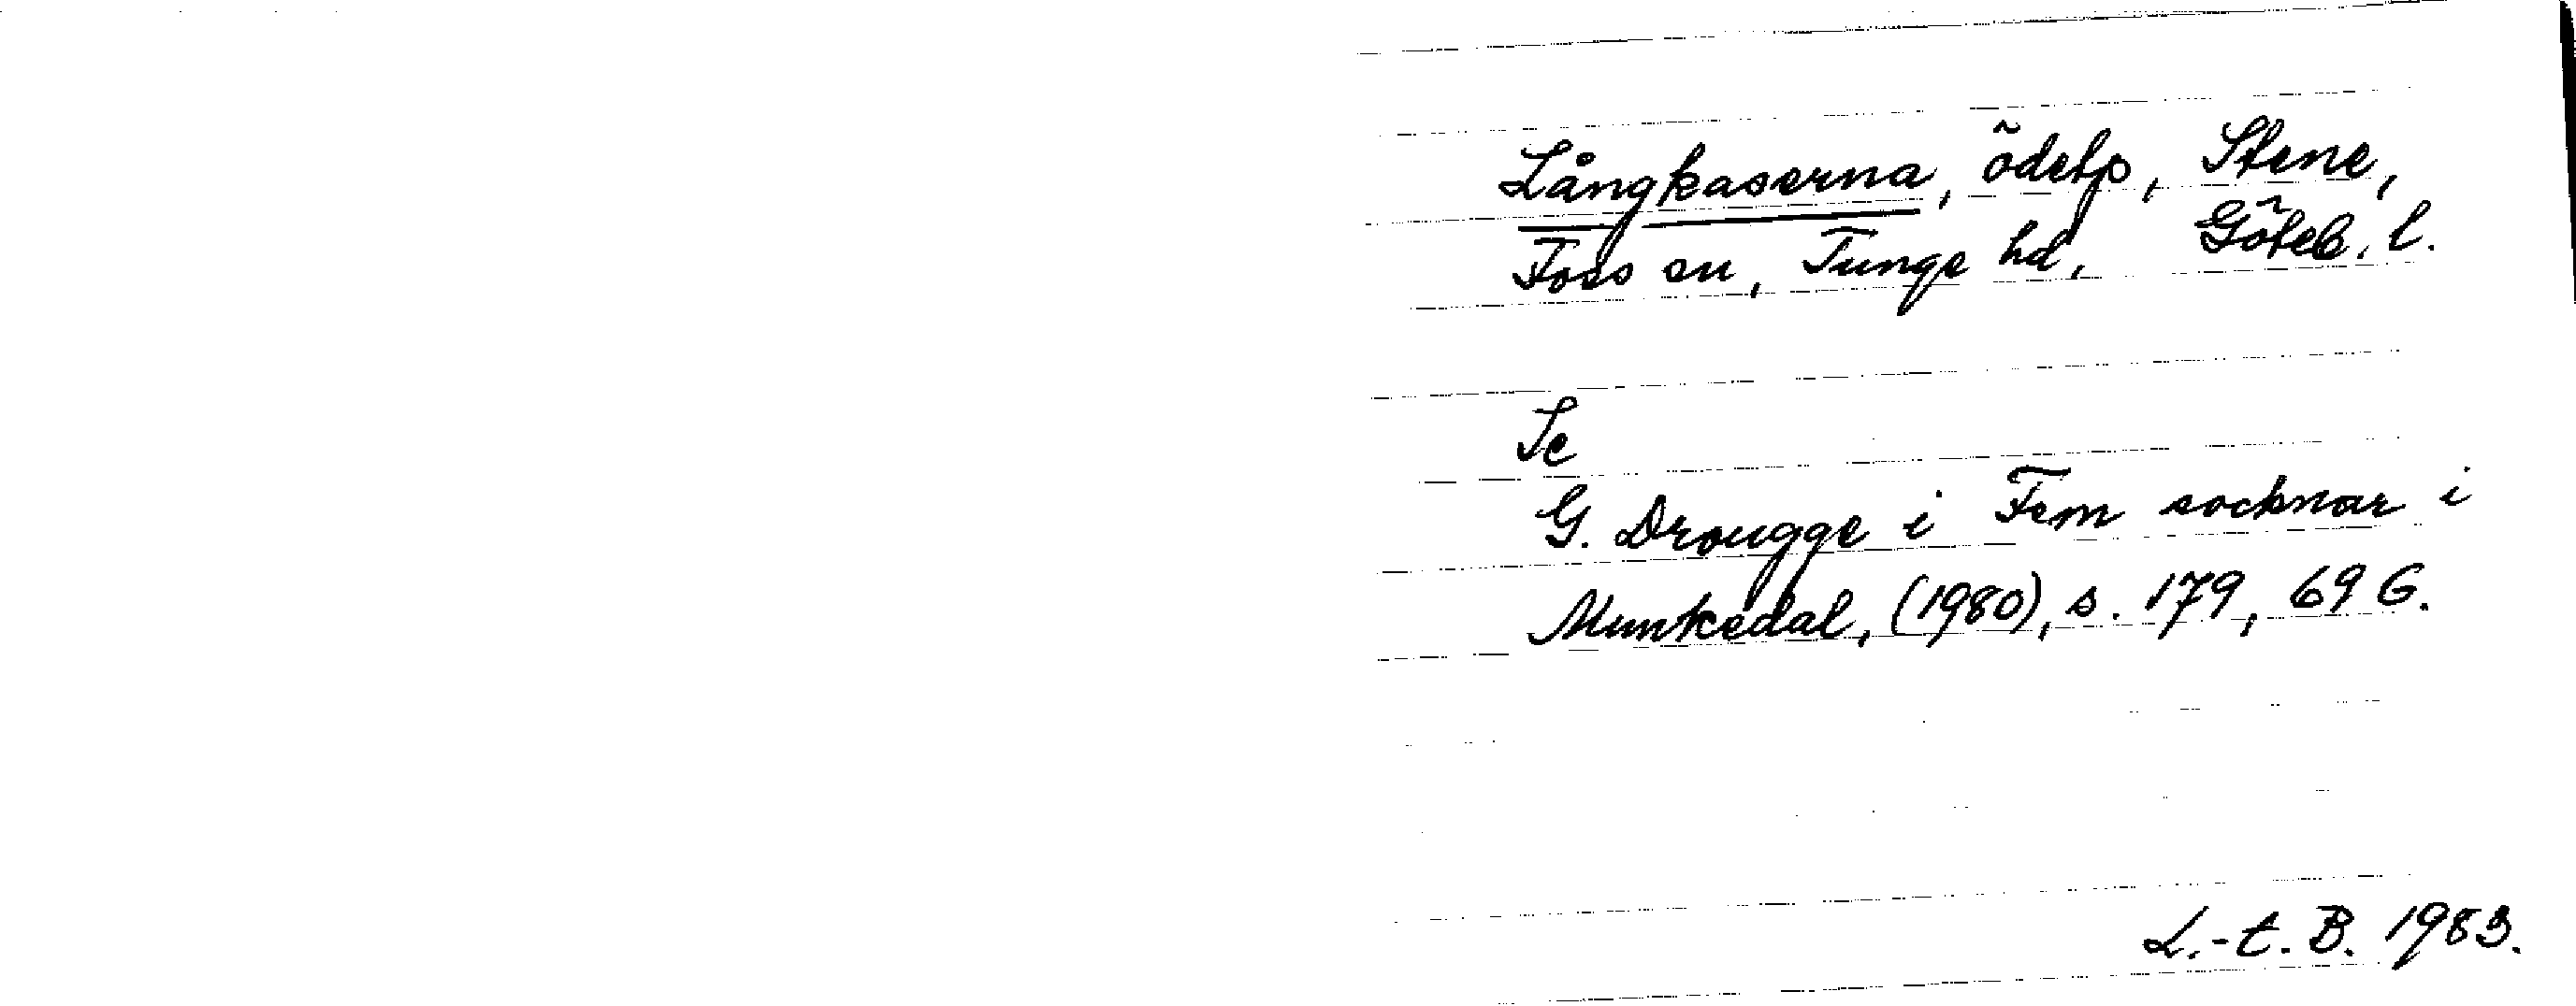 Långkaserna, ödetp, Stene,
Foss sn, Tunge hd, Göteb. l.
Se
G. Drougge i Fem socknar i
Munkedal, (1980), s. 179, 69 G.
L.-t. B. 1983.